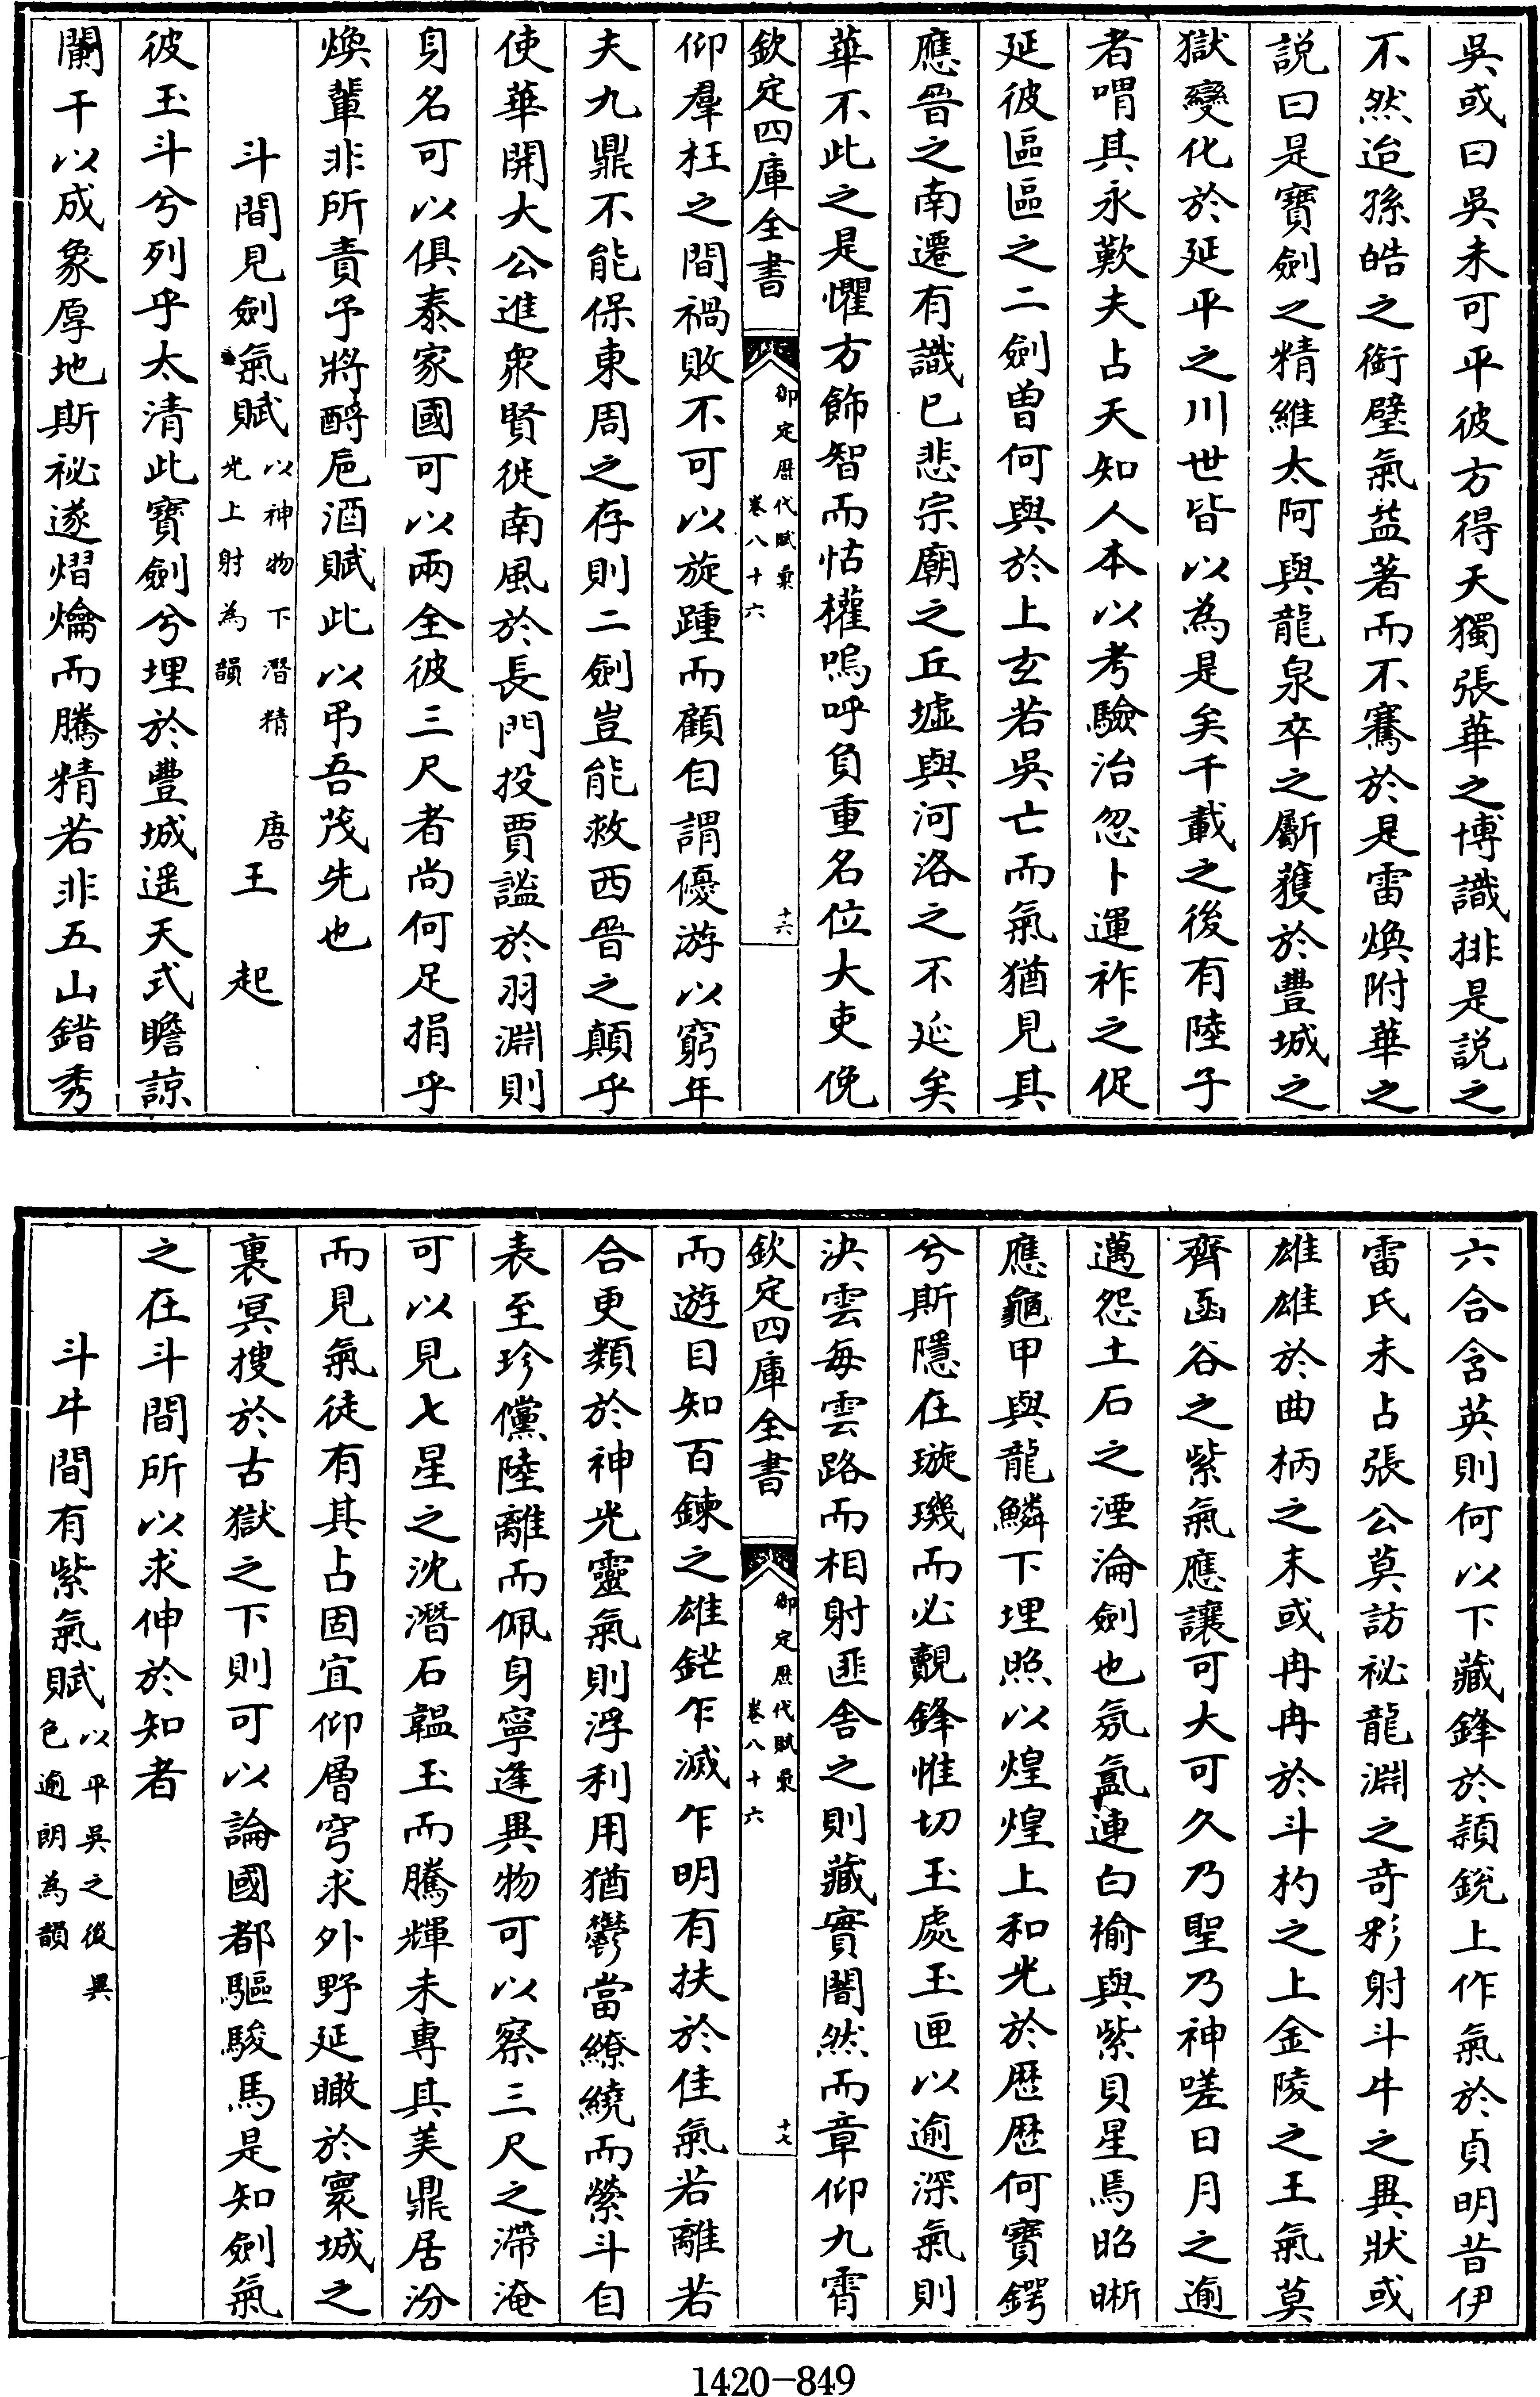 吳或曰吳未可平彼方得天獨張華之博識排是説之
不然迨孫皓之銜璧氣益著而不騫於是雷煥附華之
説曰是寶劍之精維太阿與龍泉卒之斸獲於豐城之
獄變化於延平之川世皆以為是矣千載之後有陸子
者喟其永歎夫占天知人本以考驗治忽卜運祚之促
延彼區區之二劍曽何與於上玄若吳亡而氣猶見其
應晉之南遷有識已悲宗廟之丘墟與河洛之不延矣
華不此之是懼方飾智而怙權嗚呼負重名位大吏俛
欽定四庫全書
御定歴代賦彙
卷八十六
十六
仰羣枉之間禍敗不可以旋踵而顧自謂優游以窮年
夫九鼎不能保東周之存則二劍豈能救西晉之顛乎
使華開大公進衆賢徙南風於長門投賈謐於羽淵則
身名可以俱泰家國可以兩全彼三尺者尚何足捐乎
煥輩非所責予將酹巵酒賦此以弔吾茂先也
斗間見劍氣賦 以神物下潛精光上射為韻 唐王起
彼玉斗兮列乎太清此寶劍兮埋於豐城遥天式瞻諒
闌干以成象厚地斯祕遂熠爚而騰精若非五山錯秀
六合含英則何以下藏鋒於頴鋭上作氣於貞明昔伊
雷氏未占張公莫訪祕龍淵之奇彩射斗牛之異狀或
雄雄於曲柄之末或冉冉於斗杓之上金陵之王氣莫
齊函谷之紫氣應讓可大可久乃聖乃神嗟日月之逾
邁怨土石之湮淪劍也氛氲連白榆與紫貝星焉昭晰
應龜甲與龍鱗下埋照以煌煌上和光於歴歴何寶鍔
兮斯隱在璇璣而必覿鋒惟切玉處玉匣以逾深氣則
決雲每雲路而相射匪舍之則藏實闇然而章仰九霄
欽定四庫全書
御定歴代賦彙
卷八十六
十七
而遊目知百鍊之雄鋩乍滅乍明有扶於佳氣若離若
合更類於神光靈氣則浮利用猶鬱當繚繞而縈斗自
表至珍儻陸離而佩身寧逢異物可以察三尺之滯淹
可以見七星之沈潛石韞玉而騰輝未專其美鼎居汾
而見氣徒有其占固宜仰層穹求外野延瞰於寰城之
裏冥搜於古獄之下則可以論國都驅駿馬是知劍氣
之在斗間所以求伸於知者
斗牛間有紫氣賦 以平吳之後異色逾朗為韻
1420-849